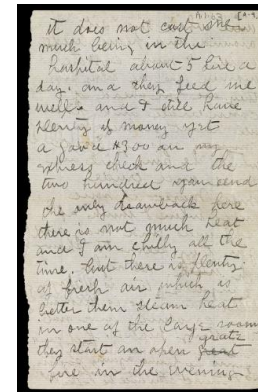 it does not cost me
much being in the
hospital about 5 lire a
day. and they feed me
well. and I still have
plenty of money yet
a good $300 in my
express check and the
two hundred you send
the only drawback here
there is not much heat
and I am chilly all the
time. but there is plenty
of fresh air which is
better then steam heat
in one of the large rooms
they start an open grate
fire in the evening